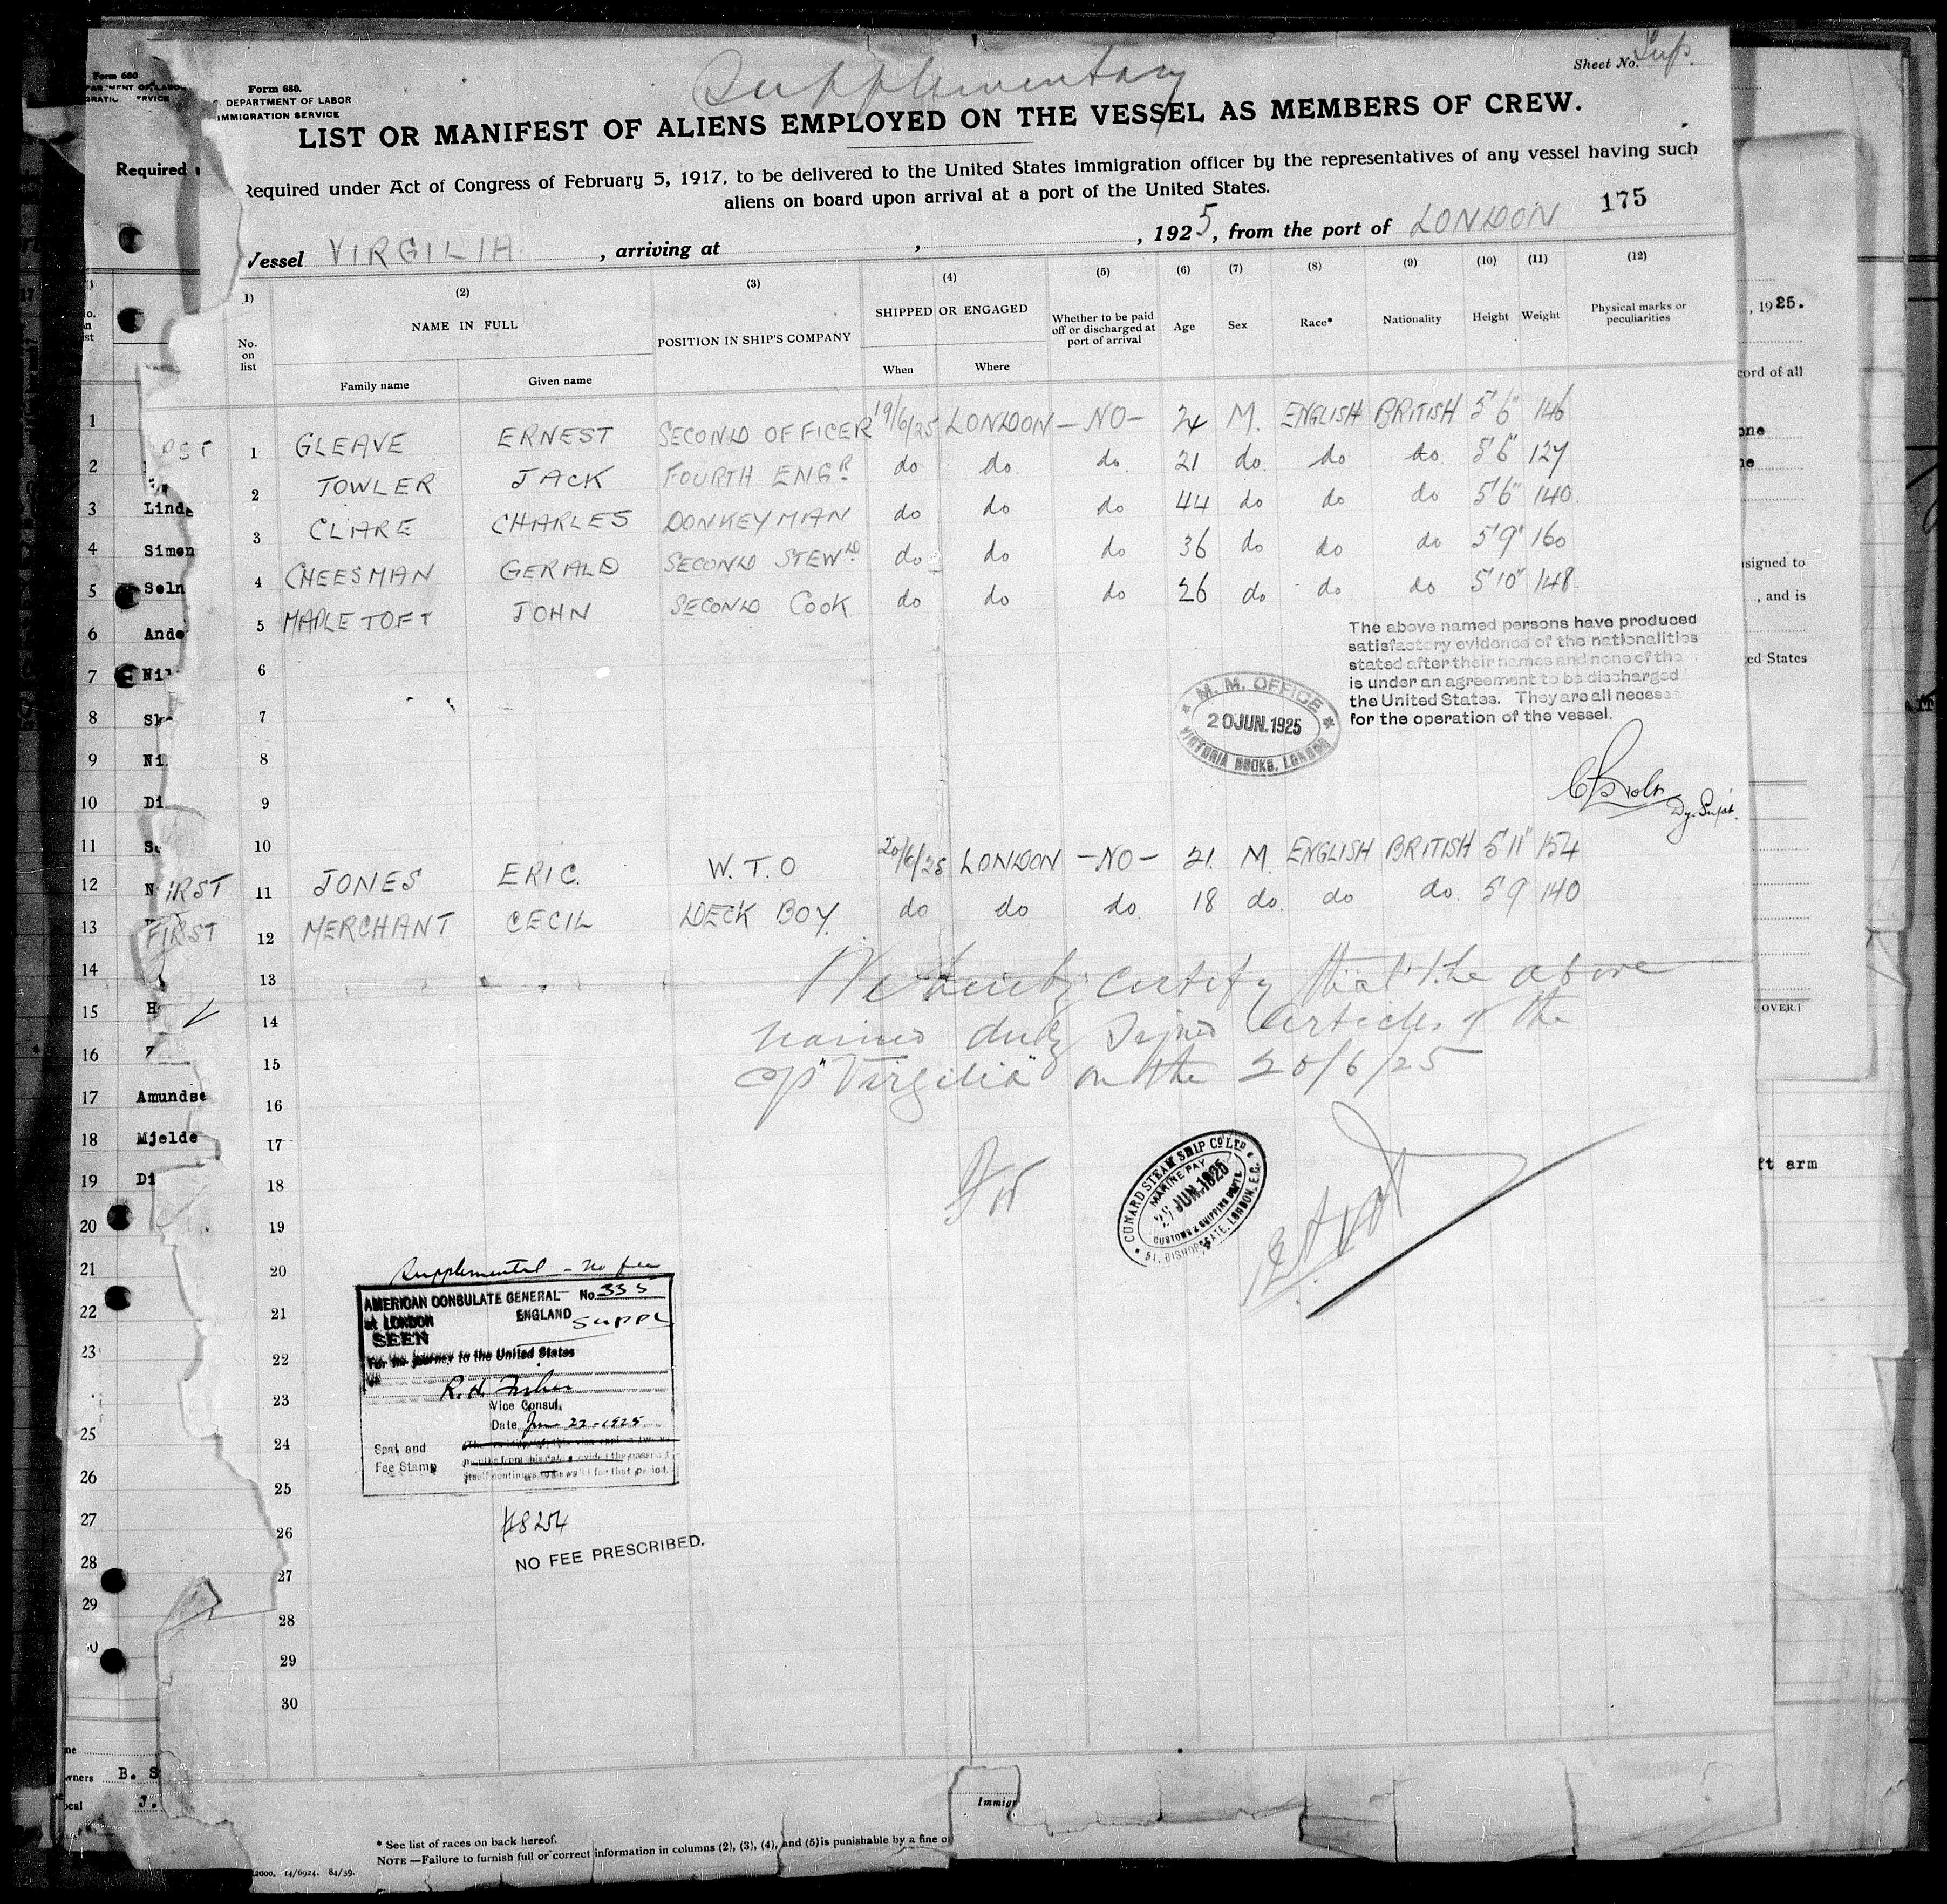 Supplementary
Sheet No. Sup.
Form 680
Form 680.
DEPARTMENT OF LABOR
IMMIGRATION SERVICE
LIST OR MANIFEST OF ALIENS EMPLOYED ON THE VESSEL AS MEMBERS OF CREW.
Required under Act of Congress of February 5, 1917, to be delivered to the United States immigration officer by the representatives of any vessel having such
aliens on board upon arrival at a port of the United States.
175
Vessel VIRGILIA, arriving at , , 1925, from the port of LONDON
(1) (2) (3) (4) (5) (6) (7) (8) (9) (10) (11) (12)
No. on list NAME IN FULL POSITION IN SHIP'S COMPANY SHIPPED OR ENGAGED Whether to be paid off or discharged at port of arrival Age Sex Race* Nationality Height Weight Physical marks or peculiarities
Family name Given name When Where
1 GLEAVE ERNEST SECOND OFFICER 19/6/25 LONDON -NO- 24 M. ENGLISH BRITISH 5'6" 146
2 TOWLER JACK FOURTH ENGR do do do 21 do do do 5'6" 127
3 CLARE CHARLES DONKEYMAN do do do 44 do do do 5'6" 140
4 CHEESMAN GERALD SECOND STEWD do do do 36 do do do 5'9" 160
5 MAPLETOFT JOHN SECOND COOK do do do 26 do do do 5'10" 148
6
7
8
9
10
The above named persons have produced
satisfactory evidence of the nationalities
stated after their names and none of the
is under an agreement to be discharged
the United States. They are all necess
for the operation of the vessel.
M. M. OFFICE
20 JUN. 1925
VICTORIA DOCKS, LONDON
Dy. Supt.
IRST 11 JONES ERIC. W.T.O 20/6/25 LONDON -NO- 21. M. ENGLISH BRITISH 5'11" 154
FIRST 12 MERCHANT CECIL DECK BOY. do do do 18 do. do do. 5'9 140
13
14
15
16
17
18
19
20
21
22
23
24
25
26
27
28
29
30
We hereby certify that the above
named duly signed Articles of the
"Virgilia" on the 20/6/25
For
CUNARD STEAM SHIP CO LTD
MARINE PAY
JUN. 1925
CUSTOMS & SHIPPING DEPTS.
51, BISHOPSGATE, LONDON, E.C.
Supplemental - no fee
AMERICAN CONSULATE GENERAL No. 335
at LONDON ENGLAND SUPPL
SEEN
For the journey to the United States
R. H. Fisher
Vice Consul.
Date Jun 22-1925
Seal and
Fee Stamp
#8254
NO FEE PRESCRIBED.
Immigr
* See list of races on back hereof.
NOTE —Failure to furnish full or correct information in columns (2), (3), (4), and (5) is punishable by a fine o
14/6924. 84/39.
Required
1
2
3 Linde
4 Simon
5 Soln
6 Ande
7 Nil
8
9 Ni
10 Di
11
12
13
14
15
16
17 Amundse
18 Mjelde
19 Di
20
21
22
23
25
26
27
28
29
B. S
J.
, 1925.
cord of all
signed to
, and is
ed States
OVER.]
ft arm